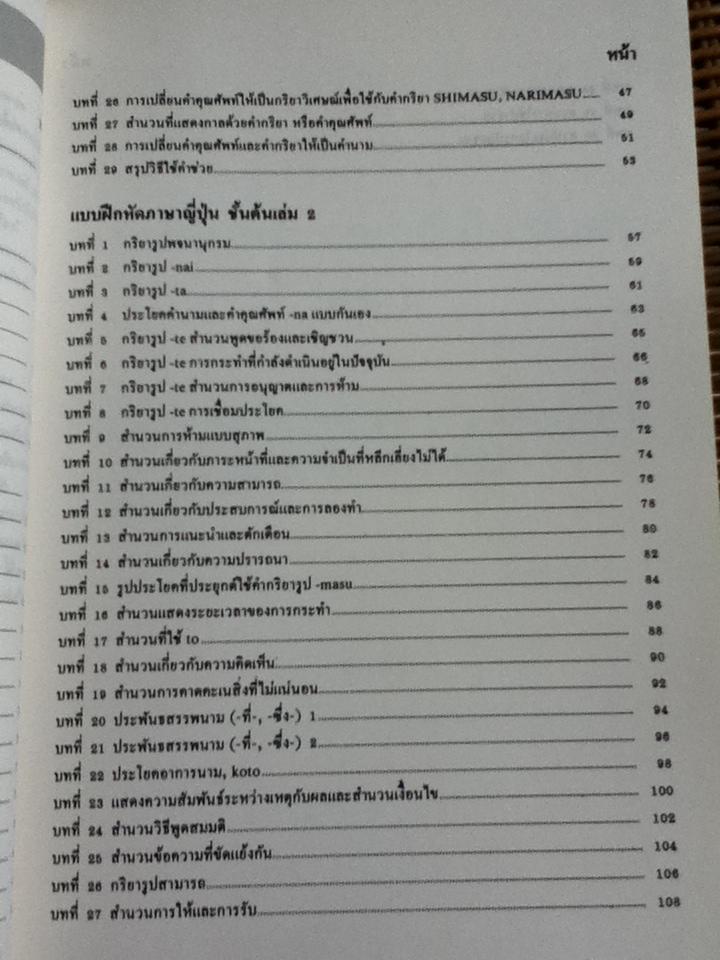 หน้า
บทที่ 26 การเปลี่ยนคำคุณศัพท์ให้เป็นกริยาวิเศษณ์เพื่อใช้กับคำกริยา SHIMASU, NARIMASU 47
บทที่ 27 สำนวนที่แสดงกาลด้วยคำกริยา หรือคำคุณศัพท์ 49
บทที่ 28 การเปลี่ยนคำคุณศัพท์และคำกริยาให้เป็นคำนาม 51
บทที่ 29 สรุปวิธีใช้คำช่วย 53
แบบฝึกหัดภาษาญี่ปุ่น ชั้นต้นเล่ม 2
บทที่ 1 กริยารูปพจนานุกรม 57
บทที่ 2 กริยารูป -nai 59
บทที่ 3 กริยารูป -ta 61
บทที่ 4 ประโยคคำนามและคำคุณศัพท์ -na แบบกันเอง 63
บทที่ 5 กริยารูป -te สำนวนพูดขอร้องและเชิญชวน 65
บทที่ 6 กริยารูป -te การกระทำที่กำลังดำเนินอยู่ในปัจจุบัน 66
บทที่ 7 กริยารูป -te สำนวนการอนุญาตและการห้าม 68
บทที่ 8 กริยารูป -te การเชื่อมประโยค 70
บทที่ 9 สำนวนการห้ามแบบสุภาพ 72
บทที่ 10 สำนวนเกี่ยวกับภาระหน้าที่และความจำเป็นที่หลีกเลี่ยงไม่ได้ 74
บทที่ 11 สำนวนเกี่ยวกับความสามารถ 76
บทที่ 12 สำนวนเกี่ยวกับประสบการณ์และการลองทำ 78
บทที่ 13 สำนวนการแนะนำและตักเตือน 80
บทที่ 14 สำนวนเกี่ยวกับความปรารถนา 82
บทที่ 15 รูปประโยคที่ประยุกต์ใช้คำกริยารูป -masu 84
บทที่ 16 สำนวนแสดงระยะเวลาของการกระทำ 86
บทที่ 17 สำนวนที่ใช้ to 88
บทที่ 18 สำนวนเกี่ยวกับความคิดเห็น 90
บทที่ 19 สำนวนการคาดคะเนสิ่งที่ไม่แน่นอน 92
บทที่ 20 ประพันธสรรพนาม (-ที่-, -ซึ่ง-) 1 94
บทที่ 21 ประพันธสรรพนาม (-ที่-, -ซึ่ง-) 2 96
บทที่ 22 ประโยคอาการนาม, koto 98
บทที่ 23 แสดงความสัมพันธ์ระหว่างเหตุกับผลและสำนวนเงื่อนไข 100
บทที่ 24 สำนวนวิธีพูดสมมติ 102
บทที่ 25 สำนวนข้อความที่ขัดแย้งกัน 104
บทที่ 26 กริยารูปสามารถ 106
บทที่ 27 สำนวนการให้และการรับ 108